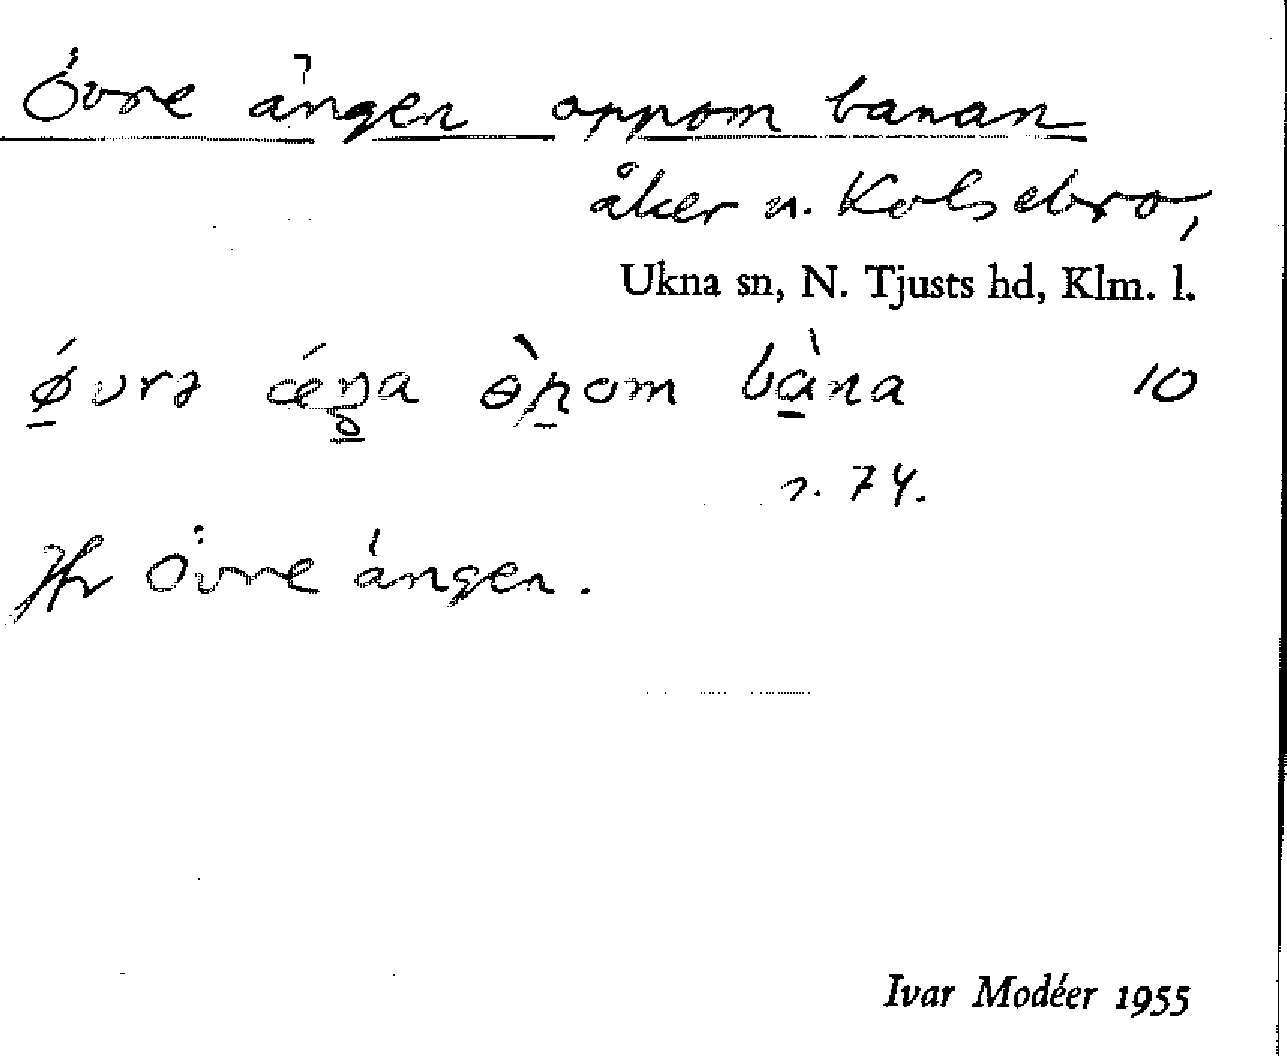 Övre ängen oppom banan
åker n. Kolsebro,
Ukna sn, N. Tjusts hd, Klm. l.
ǿvrə ǽŋa ɵ̀pom bàna 10
n. 74.
Jfr Övre ängen.
Ivar Modéer 1955